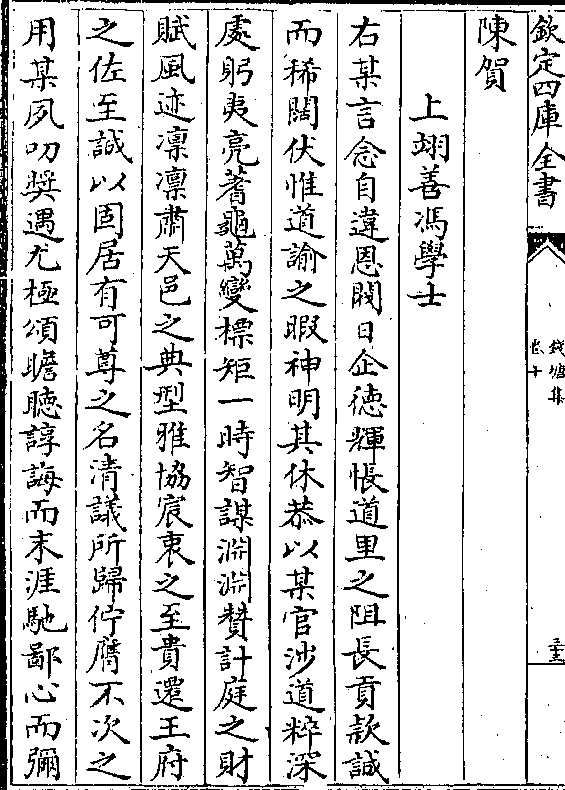 欽定四庫全書
錢塘集
卷十
三三
陳賀
上翊善馮學士
右某言念自違恩閎日企徳輝悵道里之阻長貢款誠
而稀闊伏惟道諭之暇神明其休恭以某官涉道粹深
處躬夷亮蓍龜萬變標矩一時智謀淵淵賛計庭之財
賦風迹凛凛肅天邑之典型雅協宸衷之至貴還王府
之佐至誠以固居有可尊之名清議所歸佇膺不次之
用某夙叨奬遇尤極頌瞻聽諄誨而末涯馳鄙心而彌